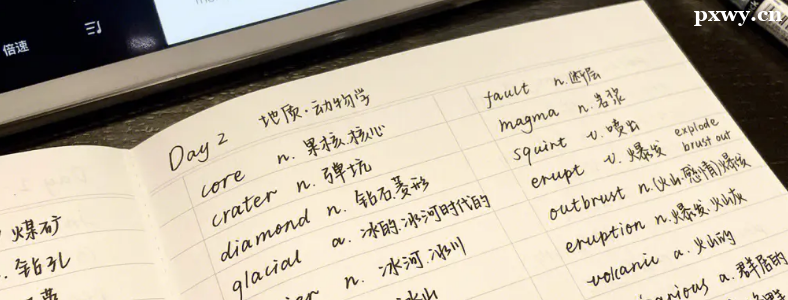 pxwy.cn
倍速
Day 2 地质·动物学
core n. 果核.核心
crater n. 弹坑
diamond n. 钻石.菱形
glacial a. 冰的.冰河时代的
n. 冰河.冰川
冰山
fault n. 断层
magma n. 岩浆
squirt v. 喷出
erupt v. 爆发 explode
brust out
outbrust n. (火山.感情)爆发
eruption n. 爆发.火山灰
volcanic a. 火山的
a. 群居的
煤矿
钻孔